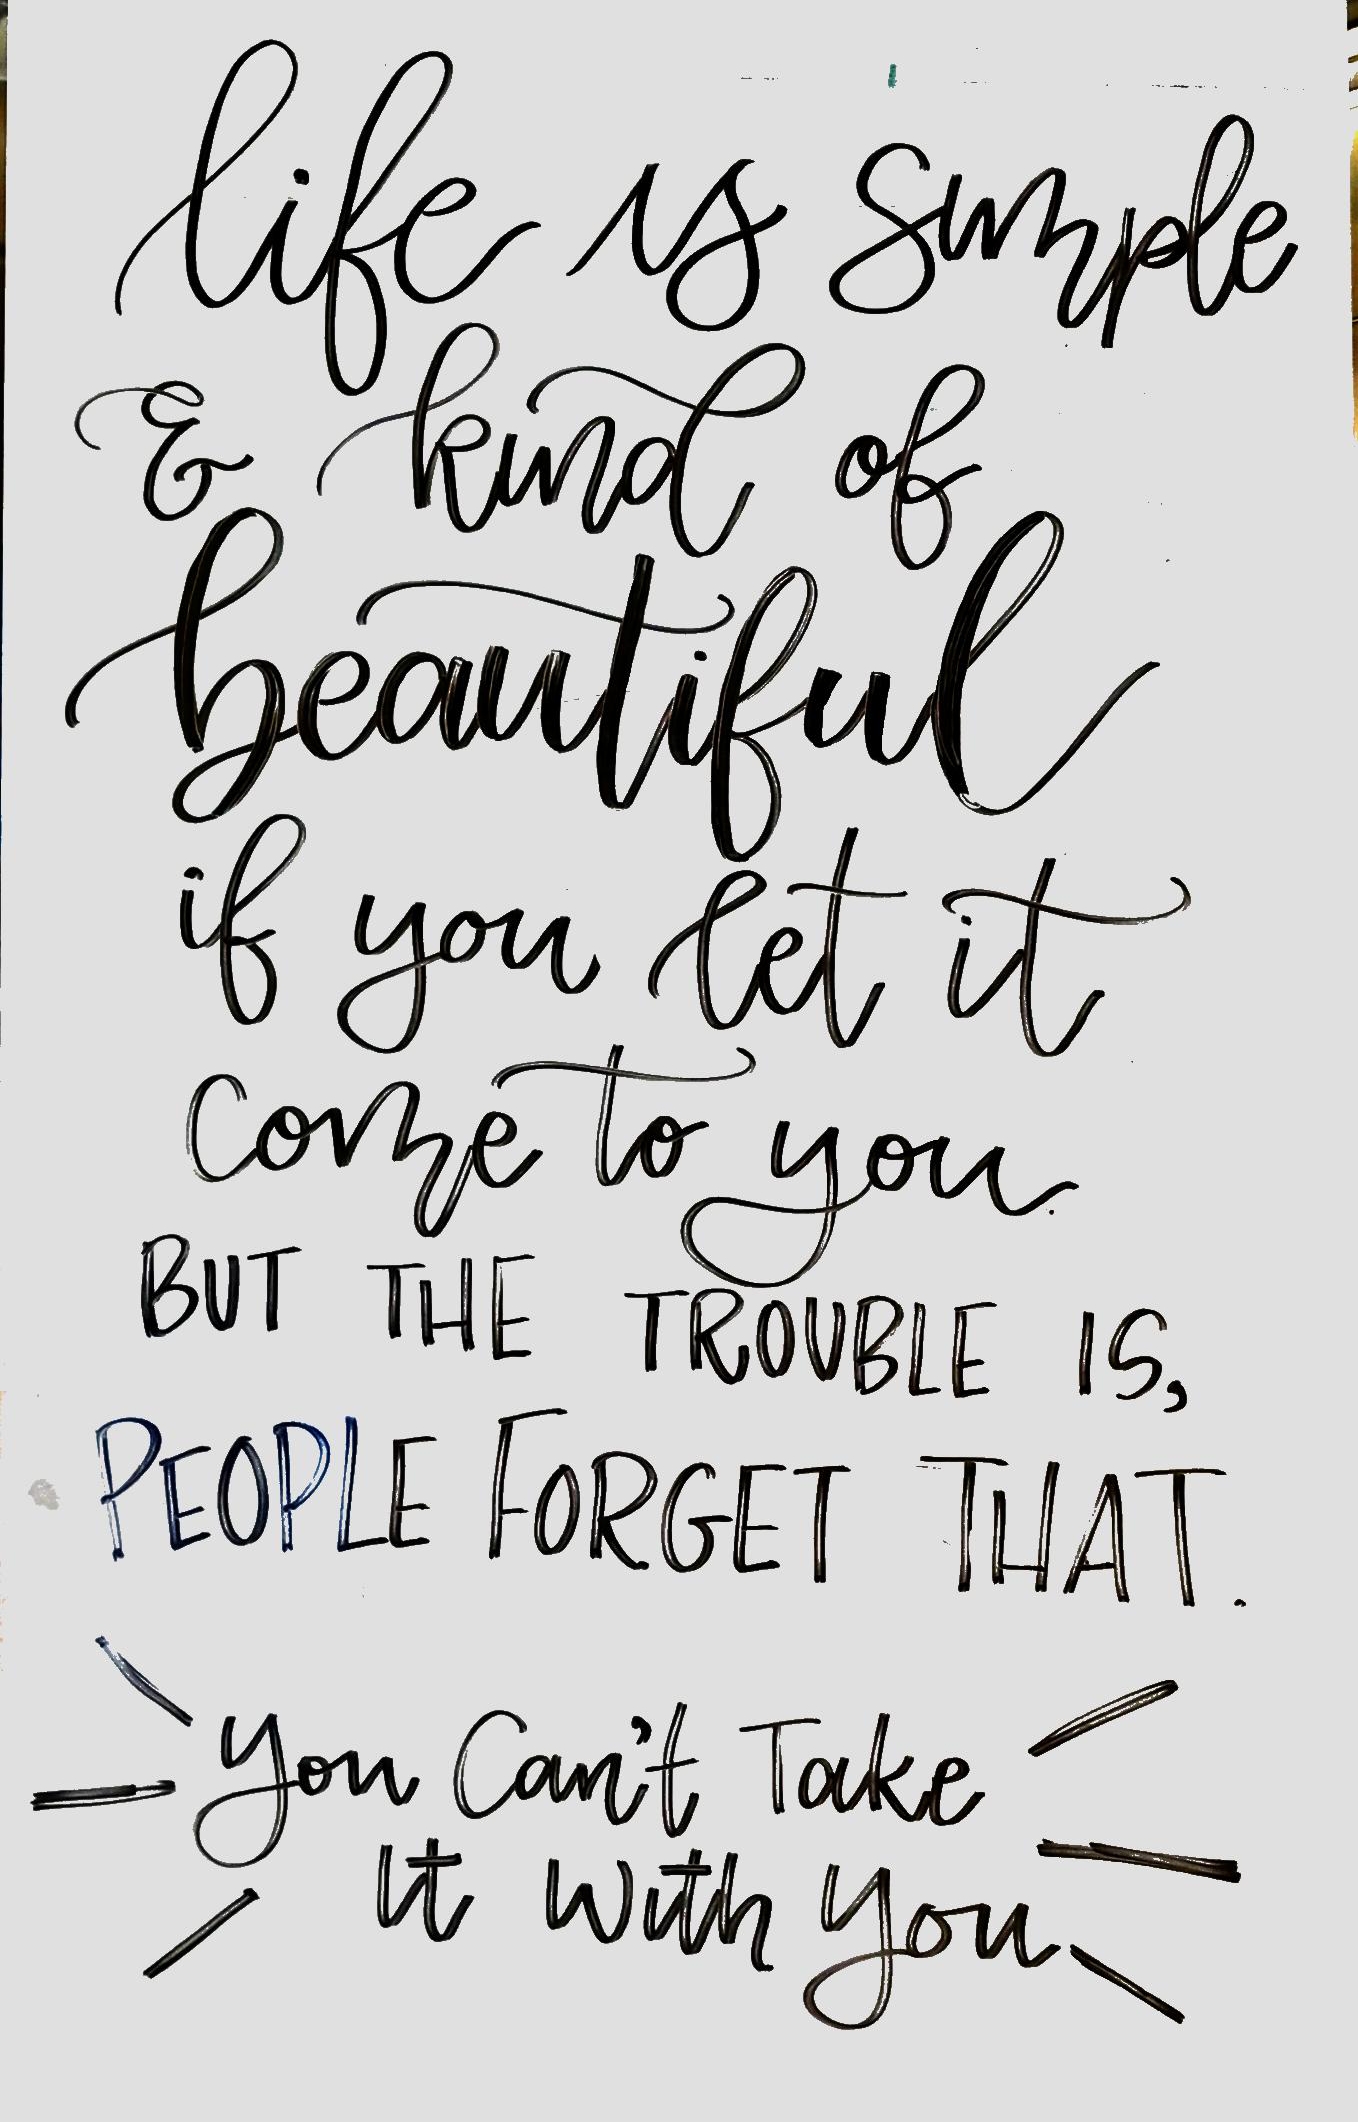 life is simple
& kind of
beautiful
if you let it
come to you.
BUT THE TROUBLE IS,
PEOPLE FORGET THAT.
You Can't Take
It With You